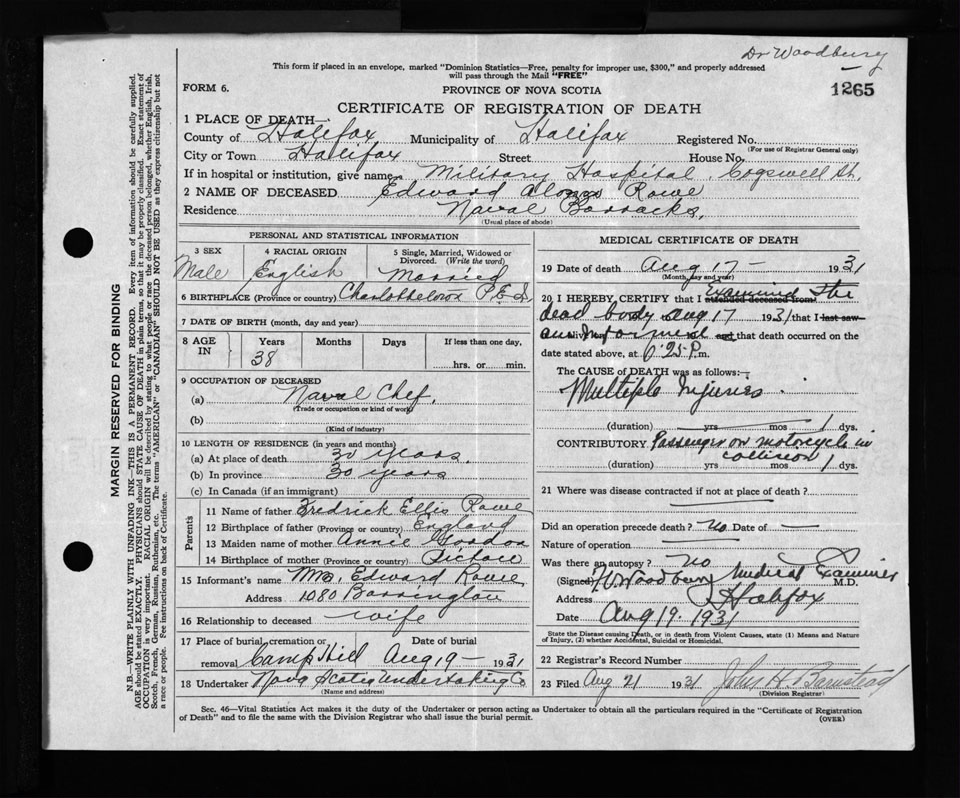 Dr Woodbury
This form if placed in an envelope, marked "Dominion Statistics—Free, penalty for improper use, $300," and properly addressed
will pass through the Mail "FREE"
FORM 6.
PROVINCE OF NOVA SCOTIA
1265
CERTIFICATE OF REGISTRATION OF DEATH
1 PLACE OF DEATH—
County of Halifax Municipality of Halifax Registered No.
(For use of Registrar General only)
City or Town Halifax Street House No.
If in hospital or institution, give name Military Hospital, Cogswell St.
2 NAME OF DECEASED Edward Alonzo Rowe
Residence Naval Barracks.
(Usual place of abode)
PERSONAL AND STATISTICAL INFORMATION
3 SEX 4 RACIAL ORIGIN 5 Single, Married, Widowed or Divorced. (Write the word)
Male English Married
6 BIRTHPLACE (Province or country) Charlottetown P.E.I.
7 DATE OF BIRTH (month, day and year)
8 AGE IN Years Months Days If less than one day,
38 hrs. or min.
9 OCCUPATION OF DECEASED
(a) Naval Chef.
(Trade or occupation or kind of work)
(b)
(Kind of industry)
10 LENGTH OF RESIDENCE (in years and months)
(a) At place of death 30 years.
(b) In province 30 years
(c) In Canada (if an immigrant)
Parents
11 Name of father Fredrick Ellis Rowe
12 Birthplace of father (Province or country) England
13 Maiden name of mother Annie Gordon
14 Birthplace of mother (Province or country) Pictou
15 Informant's name Mrs. Edward Rowe
Address 1080 Barrington
16 Relationship to deceased wife
17 Place of burial, cremation or removal Camp Hill Date of burial Aug 19 - 1931
18 Undertaker Nova Scotia Undertaking Co
(Name and address)
MEDICAL CERTIFICATE OF DEATH
19 Date of death Aug 17 - 1931
(Month, day and year)
20 I HEREBY CERTIFY that I attended deceased from Examined the
dead body Aug 17 1931 that I last saw
and that death occurred on the
date stated above, at 6.25 P.m.
The CAUSE OF DEATH was as follows:—
Multiple Injuries
(duration) yrs mos 1 dys.
CONTRIBUTORY Passenger on motorcycle in
collision
(duration) yrs mos 1 dys.
21 Where was disease contracted if not at place of death?
Did an operation precede death? No Date of —
Nature of operation
Was there an autopsy? No
(Signed) Woodbury Medical Examiner M.D.
Address Halifax
Date Aug 19. 1931
State the Disease causing Death, or in death from Violent Causes, state (1) Means and Nature
of Injury, (2) whether Accidental, Suicidal or Homicidal.
22 Registrar's Record Number
23 Filed Aug 21 1931 John H. Barnstead
(Division Registrar)
Sec. 46—Vital Statistics Act makes it the duty of the Undertaker or person acting as Undertaker to obtain all the particulars required in the "Certificate of Registration
of Death" and to file the same with the Division Registrar who shall issue the burial permit.
(OVER)
MARGIN RESERVED FOR BINDING
N.B.—WRITE PLAINLY WITH UNFADING INK—THIS IS A PERMANENT RECORD. Every item of information should be carefully supplied.
AGE should be stated EXACTLY. PHYSICIANS should STATE CAUSE OF DEATH in plain terms, so that it may be properly classified. Exact statement of
OCCUPATION is very important. RACIAL ORIGIN will be described by stating to what people or race the deceased person belonged, whether English, Irish,
Scotch, French, German, Russian, Ruthenian, etc. The terms "AMERICAN" or "CANADIAN" SHOULD NOT BE USED as they express citizenship but not
a race or people. See instructions on back of Certificate.